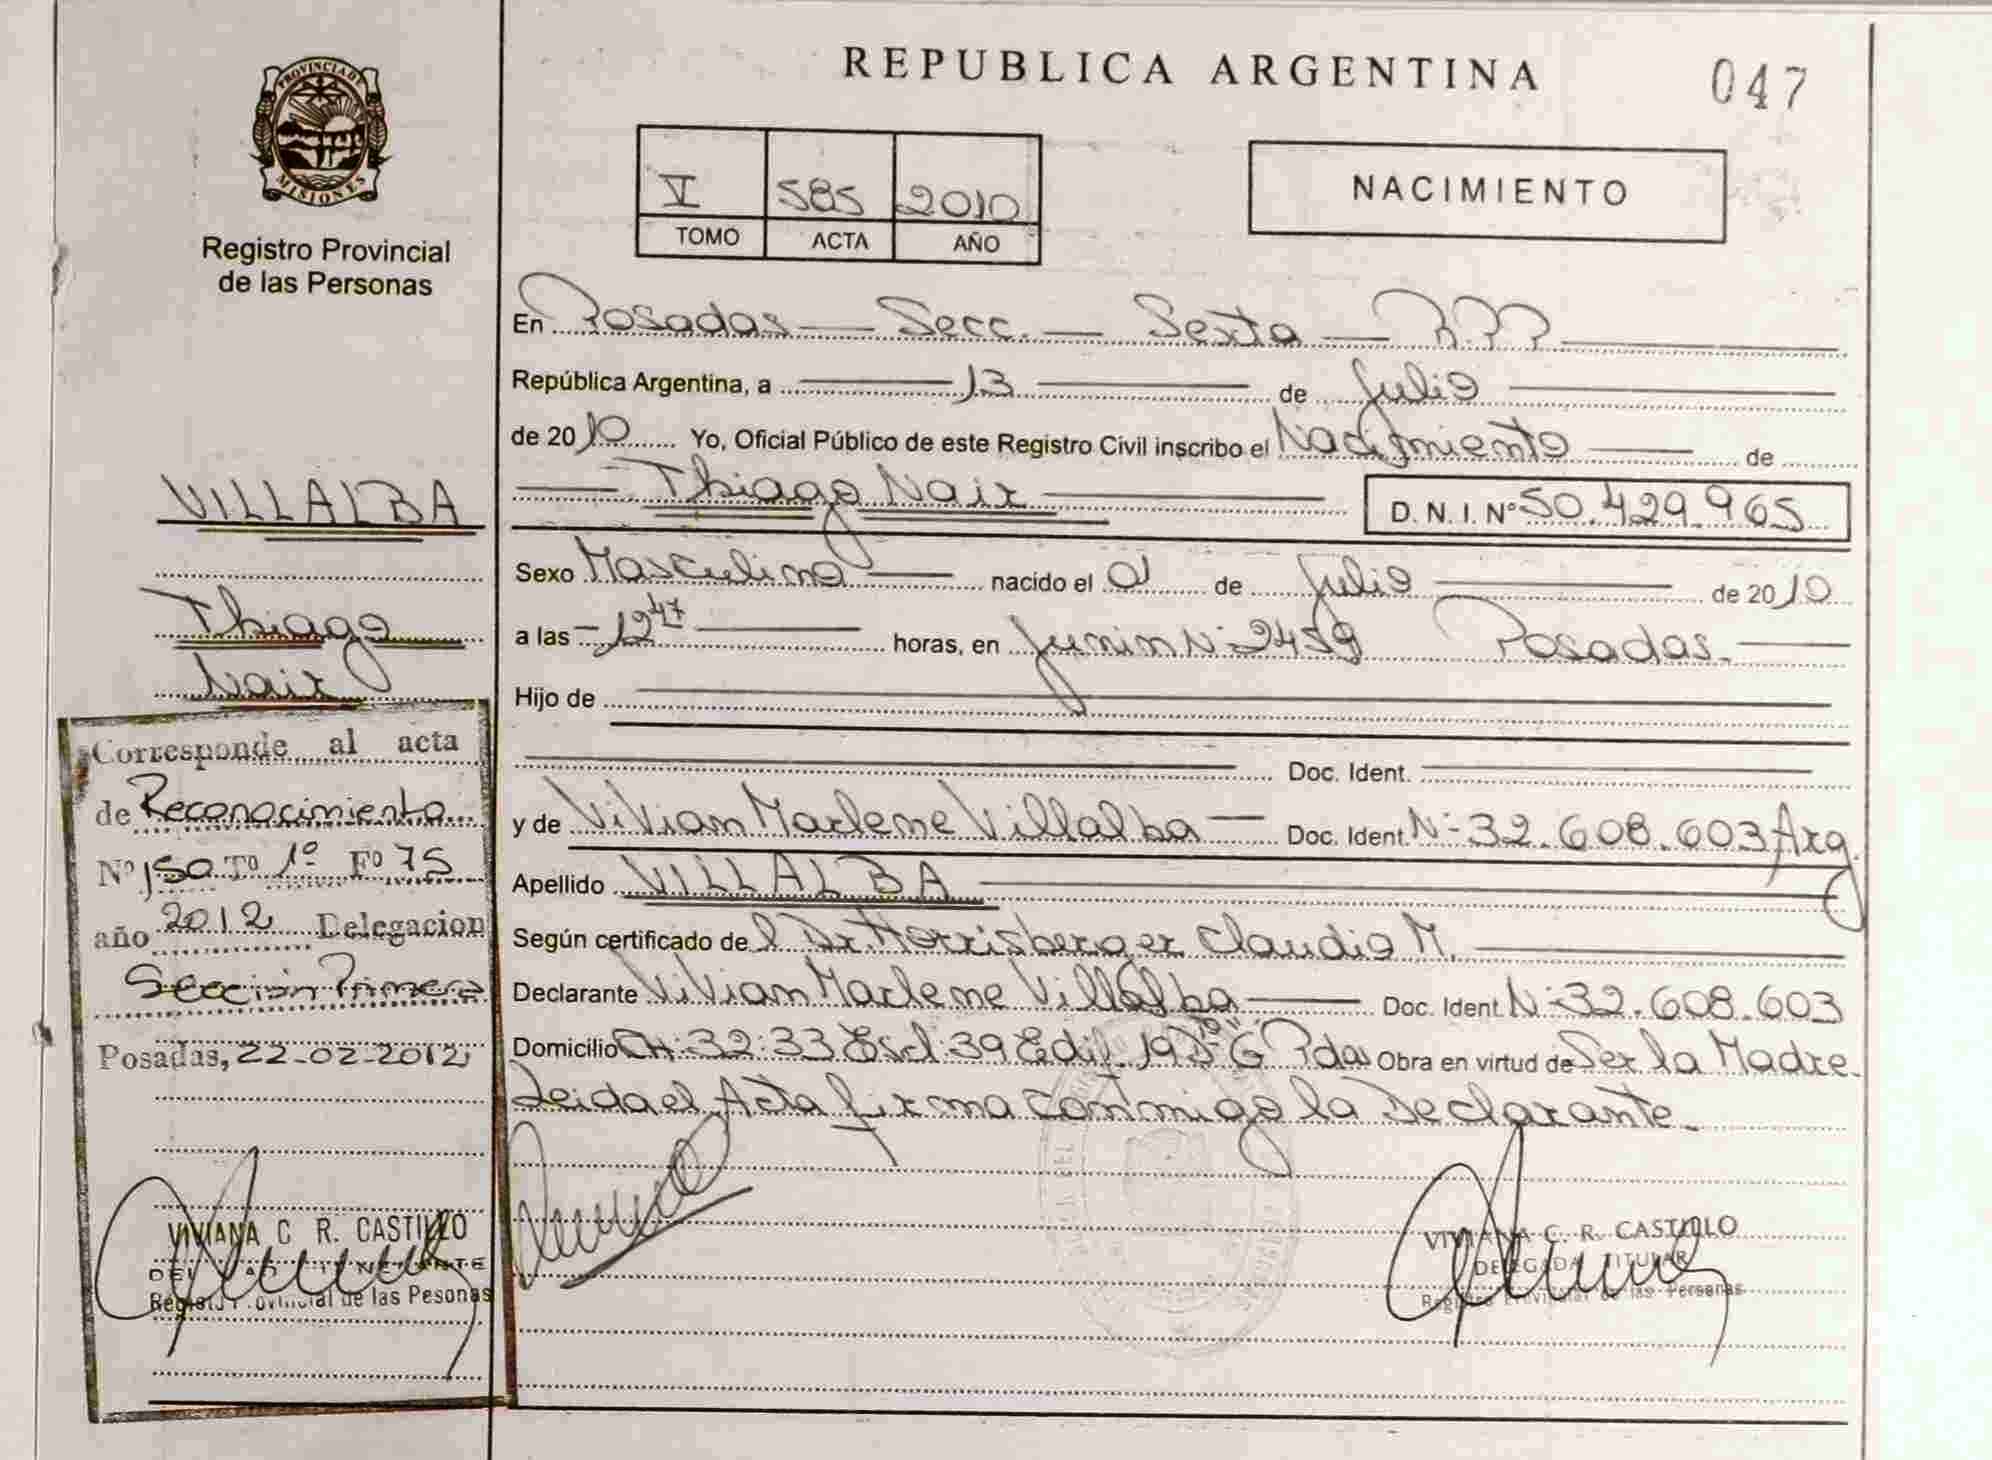 PROVINCIA DE
MISIONES
Registro Provincial
de las Personas
VILLALBA
Thiago
Nair
Corresponde al acta
de Reconocimiento
Nº 150 Tº 1º Fº 75
año 2012 Delegacion
Sección Primera
Posadas, 22-02-2012
VIVIANA C. R. CASTILLO
Registro Provincial de las Pesonas
REPUBLICA ARGENTINA
047
V 585 2010
TOMO ACTA AÑO
NACIMIENTO
En Posadas Secc. Sexta R.P.P
República Argentina, a 13 de Julio
de 2010 Yo, Oficial Público de este Registro Civil inscribo el Nacimiento de
Thiago Nair D. N. I. Nº 50.429.965
Sexo Masculino nacido el 01 de Julio de 2010
a las 12 47 horas, en Junin Nº 2459 Posadas.
Hijo de
Doc. Ident.
y de Vivian Marlene Villalba Doc. Ident. Nº 32.608.603 Arg.
Apellido VILLALBA
Según certificado del Dr. Horrisberger Claudio M.
Declarante Vivian Marlene Villalba Doc. Ident. Nº 32.608.603
Domicilio CH: 32:33 Escl 39 Edif. 19 Pdas Obra en virtud de Ser la Madre.
Leida el Acta firma conmigo la Declarante.
VIVIANA C. R. CASTILLO
DELEGADA TITULAR
Registro Provincial de las Personas